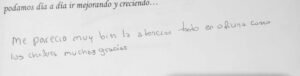 podamos día a día ir mejorando y creciendo…
Me parecio muy bin la atencion tanto en oficina como
los choferes muchas gracias